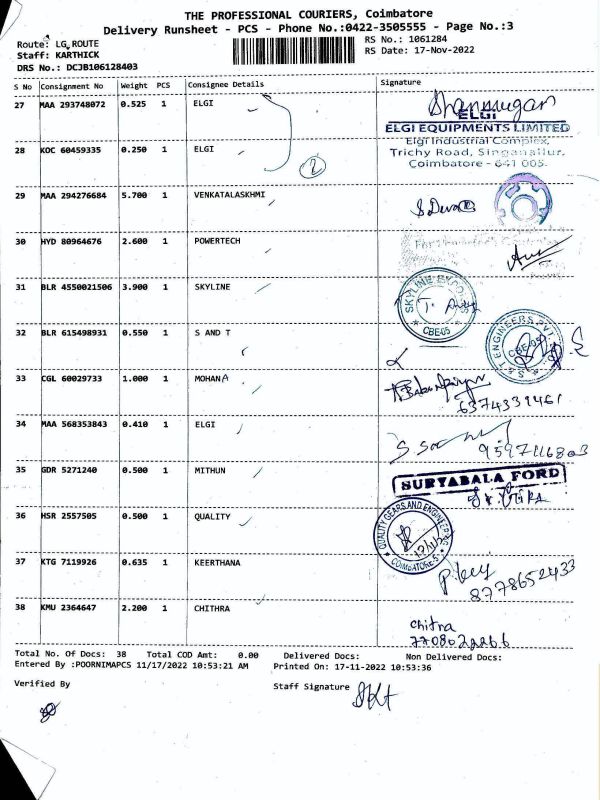 THE PROFESSIONAL COURIERS, Coimbatore
Delivery Runsheet - PCS - Phone No.:0422-3505555 - Page No.:3
Route: LG ROUTE
RS No.: 1061284
Staff: KARTHICK
RS Date: 17-Nov-2022
DRS No.: DCJB106128403
S No Consignment No Weight PCS Consignee Details Signature
27 MAA 293748072 0.525 1 ELGI
Shanmugan
ELGI
ELGI EQUIPMENTS LIMITED
Elgi Industrial Complex,
28 KOC 60459335 0.250 1 ELGI
Trichy Road, Singanallur,
Coimbatore - 641 005.
2
29 MAA 294276684 5.700 1 VENKATALASKHMI
30 HYD 80964676 2.600 1 POWERTECH
31 BLR 4550021506 3.900 1 SKYLINE
SKYLINE
CBE-05
32 BLR 615498931 0.550 1 S AND T
S & T ENGINEERS PVT.
CBE-05
33 CGL 60029733 1.000 1 MOHANA
6374331461
34 MAA 568353843 0.410 1 ELGI
35 GDR 5271240 0.500 1 MITHUN
SURYABALA FORD
36 HSR 2557505 0.500 1 QUALITY
QUALITY GEARS AND ENGINEERING
COIMBATORE-5
37 KTG 7119926 0.635 1 KEERTHANA
8778652433
38 KMU 2364647 2.200 1 CHITHRA
chitra
Total No. Of Docs: 38 Total COD Amt: 0.00 Delivered Docs: Non Delivered Docs:
Entered By :POORNIMAPCS 11/17/2022 10:53:21 AM Printed On: 17-11-2022 10:53:36
Verified By
Staff Signature